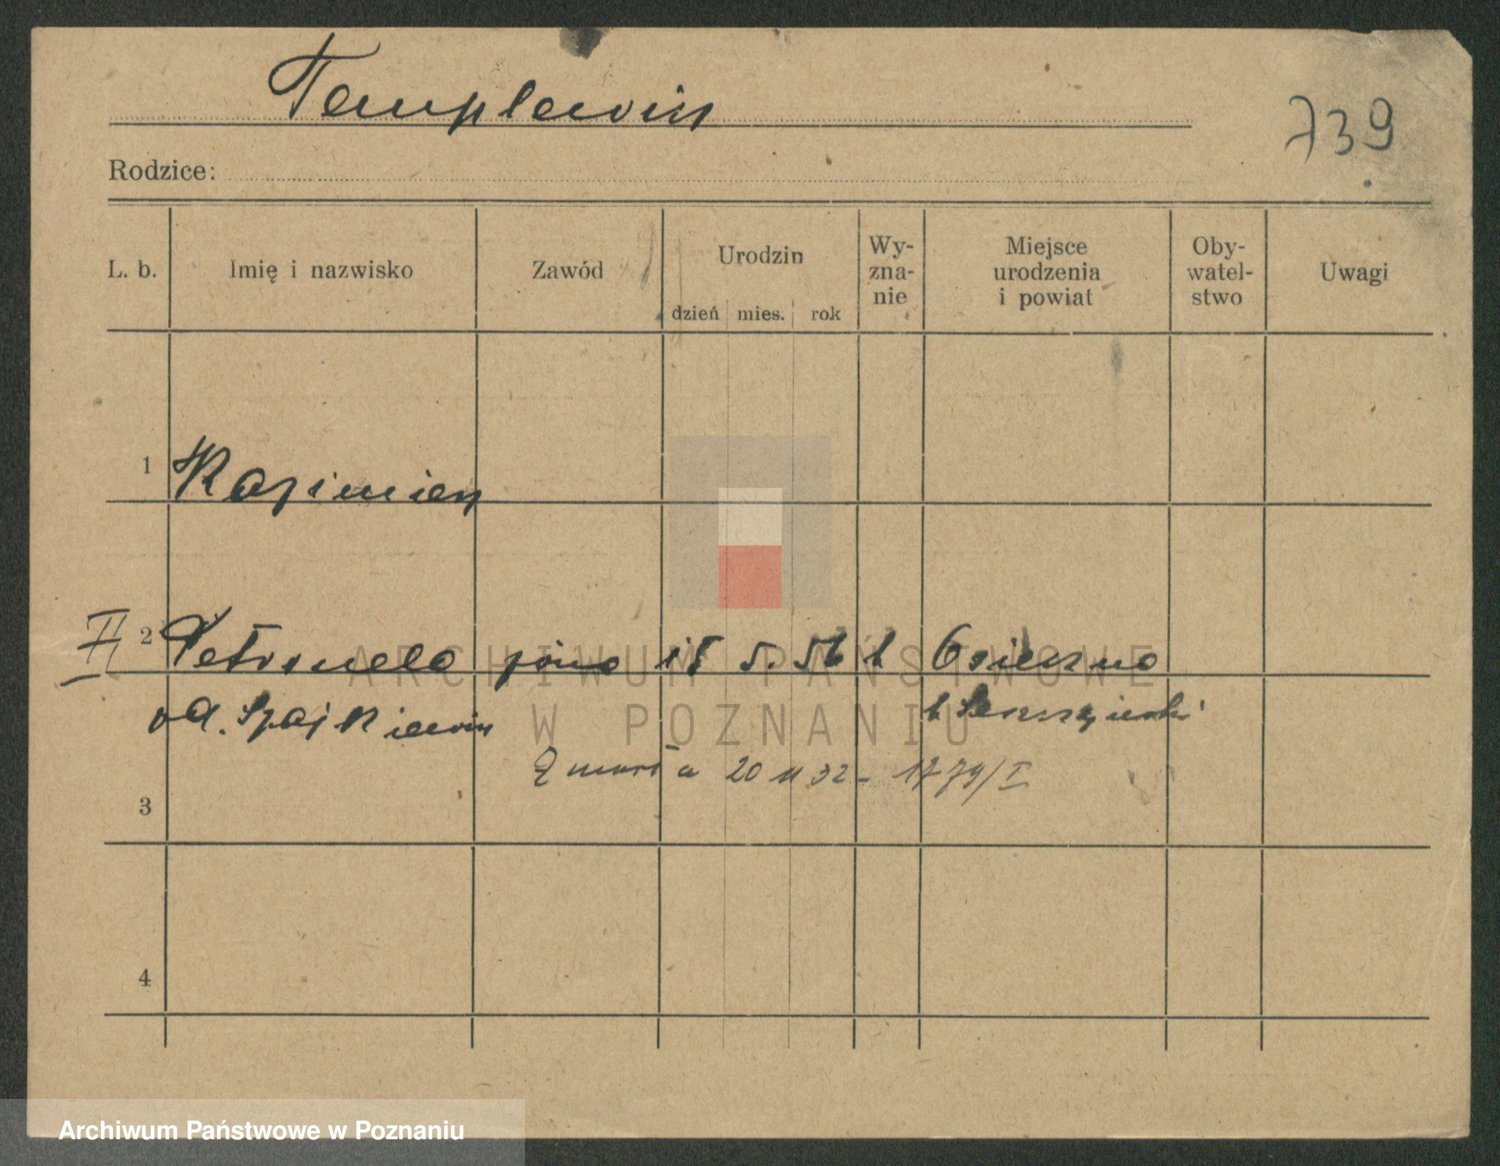 Templewicz
739
Rodzice:
L. b.
Imię i nazwisko
Zawód
Urodzin
dzień mies. rok
Wy-
zna-
nie
Miejsce
urodzenia
i powiat
Oby-
watel-
stwo
Uwagi
1 Kazimierz
II 2 Petronela żona 18 5. 56 k Osieczno
Zmarła 20 11 32 - 1779/I
3
4
ARCHIWUM PAŃSTWOWE
W POZNANIU
Archiwum Państwowe w Poznaniu